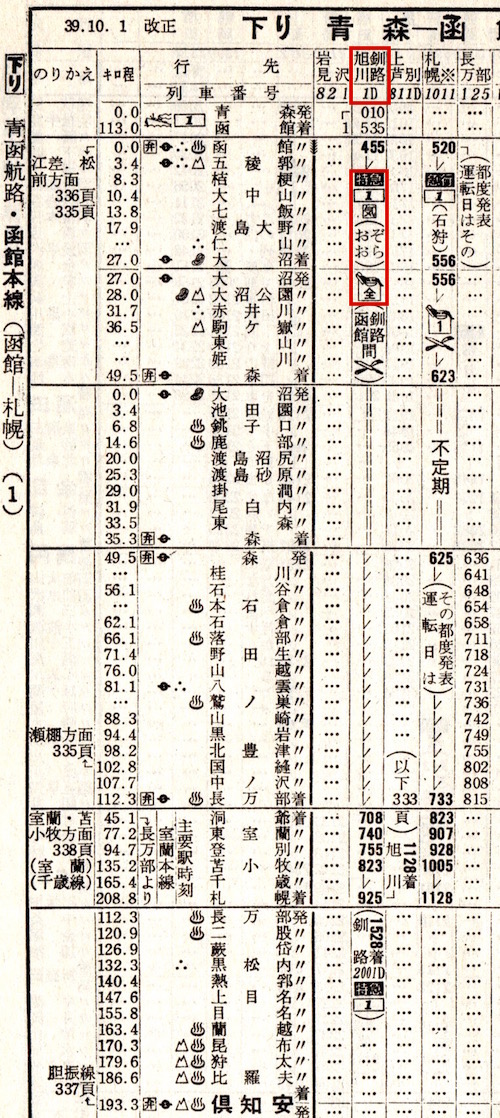 39.10.1 改正 下り 青森—函
下り 青函航路・函館本線(函館—札幌) (1)
のりかえ キロ程 行先 岩見沢 旭川 釧路 上芦別 札幌※ 長万部
列車番号 821 1D 811D 1011 125
0.0 青森発 010
113.0 1 函館着 1 535
0.0 弁 函館〃 455 … 520
江差、松 3.4 五稜郭〃
前方面 8.3 桔梗〃 特急 急行
336頁 10.4 大中山〃 1 1
335頁 13.8 七飯〃
17.9 渡島大野〃 (おおぞら) (石狩)
… 仁山〃
27.0 大沼着 556
都度発表 運転日はその
27.0 大沼発 556
28.0 大沼公園〃 全
31.7 赤井川〃
36.5 駒ケ嶽〃 (函館釧路間) 1
… 東山〃
… 姫川〃
49.5 弁 森着 623
0.0 大沼発
3.4 池田園〃
6.8 銚子口〃
14.6 鹿部〃
20.0 渡島沼尻〃 不定期
25.3 渡島砂原〃
29.0 掛澗〃
31.9 尾白内〃
33.5 東森〃
35.3 弁 森着
49.5 弁 森発 625 636
… 桂川〃 641
56.1 石谷〃 648
… 本石倉〃 654
62.1 石倉〃 658
66.1 落部〃 711
71.4 野田生〃 718
76.0 山越〃 724
81.1 八雲〃 731
… 鷲ノ巣〃 736
88.3 山崎〃 742
瀬棚方面 94.4 黒岩〃 749
335頁 98.2 北豊津〃 755
102.8 国縫〃 802
107.7 中ノ沢〃 808
112.3 弁 長万部着 333 733 815
(その都度発表 運転日は)
(以下 333頁)
室蘭・苫 45.1 洞爺着 708 823
小牧方面 77.2 東室蘭〃 740 907
338頁 94.7 登別〃 755 928
(室蘭) 135.2 苫小牧〃 823 1005
(千歳線) 165.4 千歳〃
208.8 札幌着 925 1128
長万部より 室蘭本線 主要駅時刻
旭川 1128着
112.3 長万部発
120.9 二股〃
126.9 蕨岱〃
132.3 黒松内〃
140.4 熱郛〃
147.6 上目名〃
155.8 目名〃
163.4 蘭越〃
170.3 昆布〃
179.6 狩太〃
胆振線 186.6 比羅夫〃
337頁 193.3 弁 倶知安 着発
(釧路 1528着 2001D 特急 1)